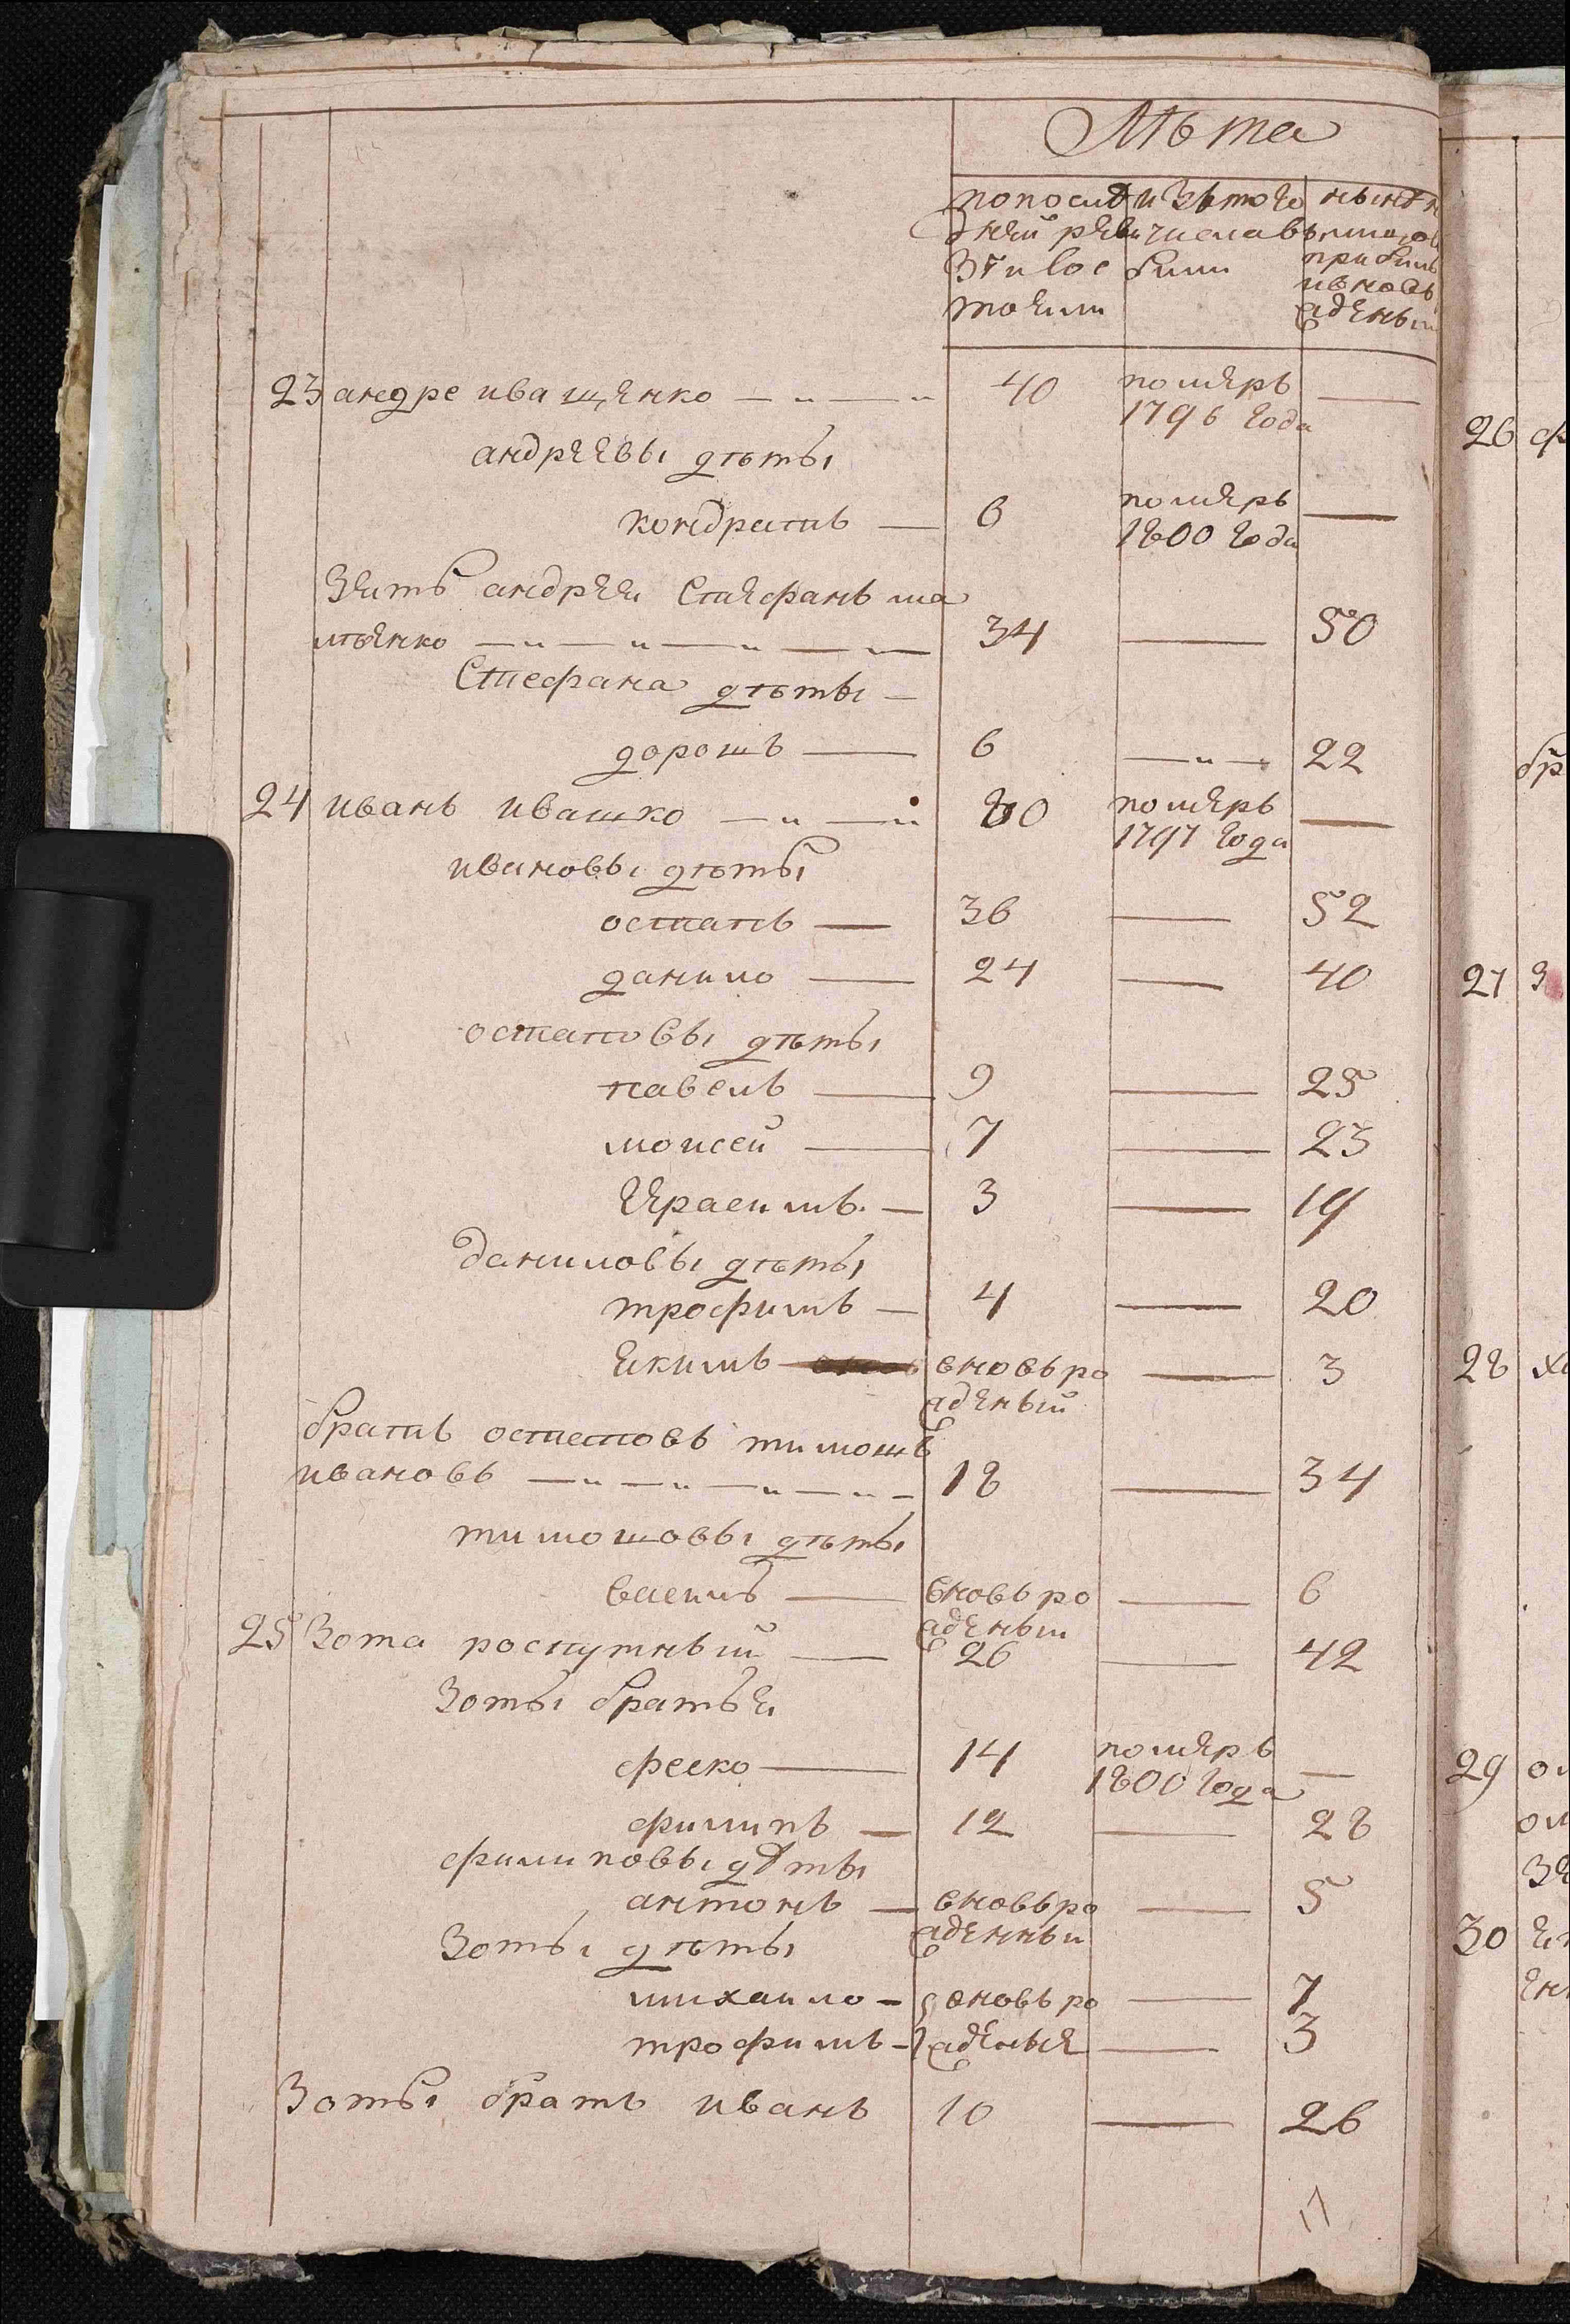 Лѣта
по послѣ изъ того нынѣ н
дней реви числа вы на лицо
зіи состояли были прибыл и вновь рожденый
23 андре иващенко — „ — „ 40 померъ 1796 года —
андреевы дѣты
кондратъ — 6 померъ 1800 года —
Зять андрея Стефанъ ма
лѣенко — „ — „ — „ — „ — 34 — 50
Стефана дѣты —
дорошъ — 6 — „ — 22
24 иванъ ивашко — „ — „ 80 померъ 1797 года —
ивановы дѣты
остапъ — 36 — 52
данило — 24 — 40
остаповы дѣты
павелъ — 9 — 25
мойсей — 7 — 23
Герасимъ — 3 — 19
даниловы дѣты
трофимъ — 4 — 20
якимъ — вновь рожденый — 3
братъ остаповъ тимошъ
ивановъ — „ — „ — „ — „ — 18 — 34
тимошовы дѣты
василь — вновь рожденый — 6
25 Зота роспутный — 26 — 42
Зоты братья
феско — 14 померъ 1800 года —
филипъ — 12 — 28
филиповы дѣты
антонъ — вновь рожденный — 5
Зоты дѣты
михаило — вновь ро — 7
трофимъ — жденые — 3
Зоты братъ иванъ 10 — 26
17
26 ф
бр
27 З
28 хо
29 ом
ом
зя
30 як
ен